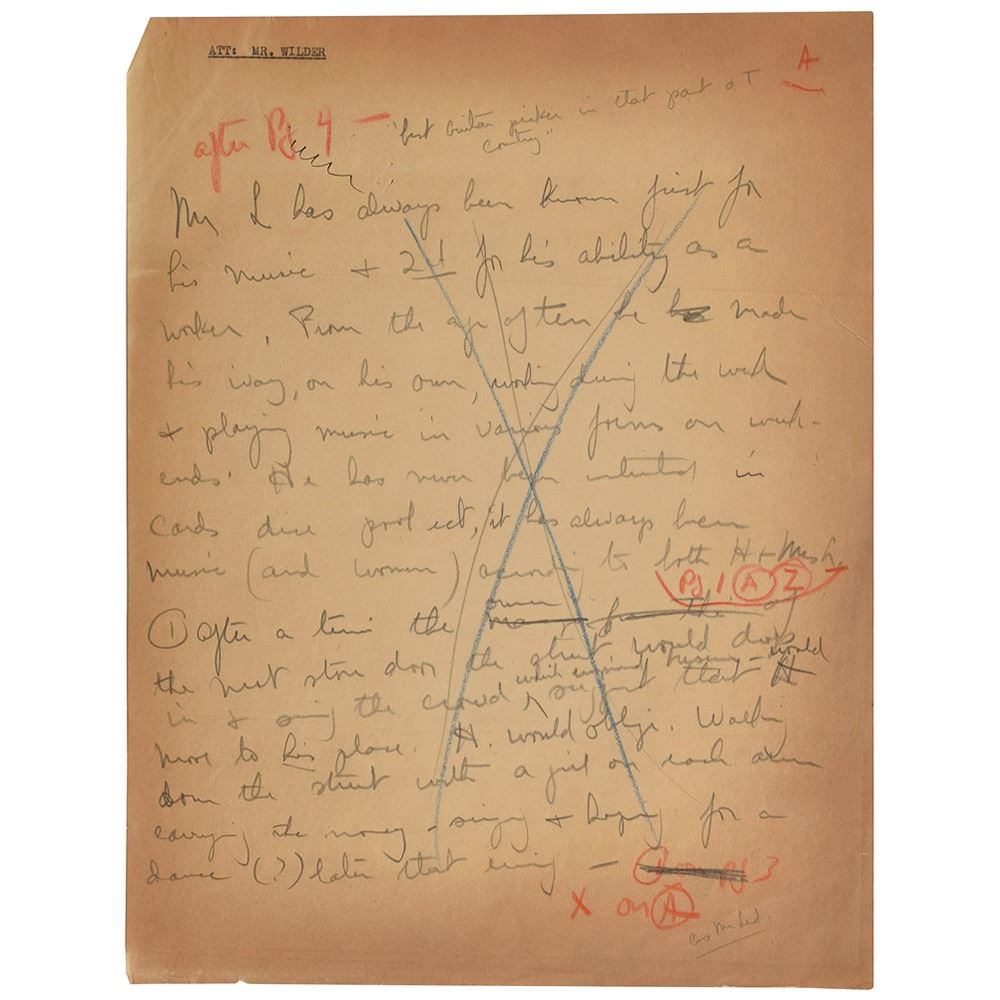 ATT: MR. WILDER
A
after Pg 4 —
"best Guitar picker in that part of
country"
Mr L has always been known first for
his music + 2nd for his ability as a
worker, From the age of ten he made
his way, on his own, working during the week
+ playing music in various forms on week-
ends. He has never been interested in
Cards dice pool ect, it has always been
music (and women) according to both H +
Pg 1 A 2
① after a time the owner
the next store down the street would drop
in + seeing the crowd which enjoyed music - would
suggest that H
move to his place. H. would oblige. Walking
down the street with a girl on each arm
carrying the money - singing + hoping for a
dance (?) later that evening —
Pg 3
X on A